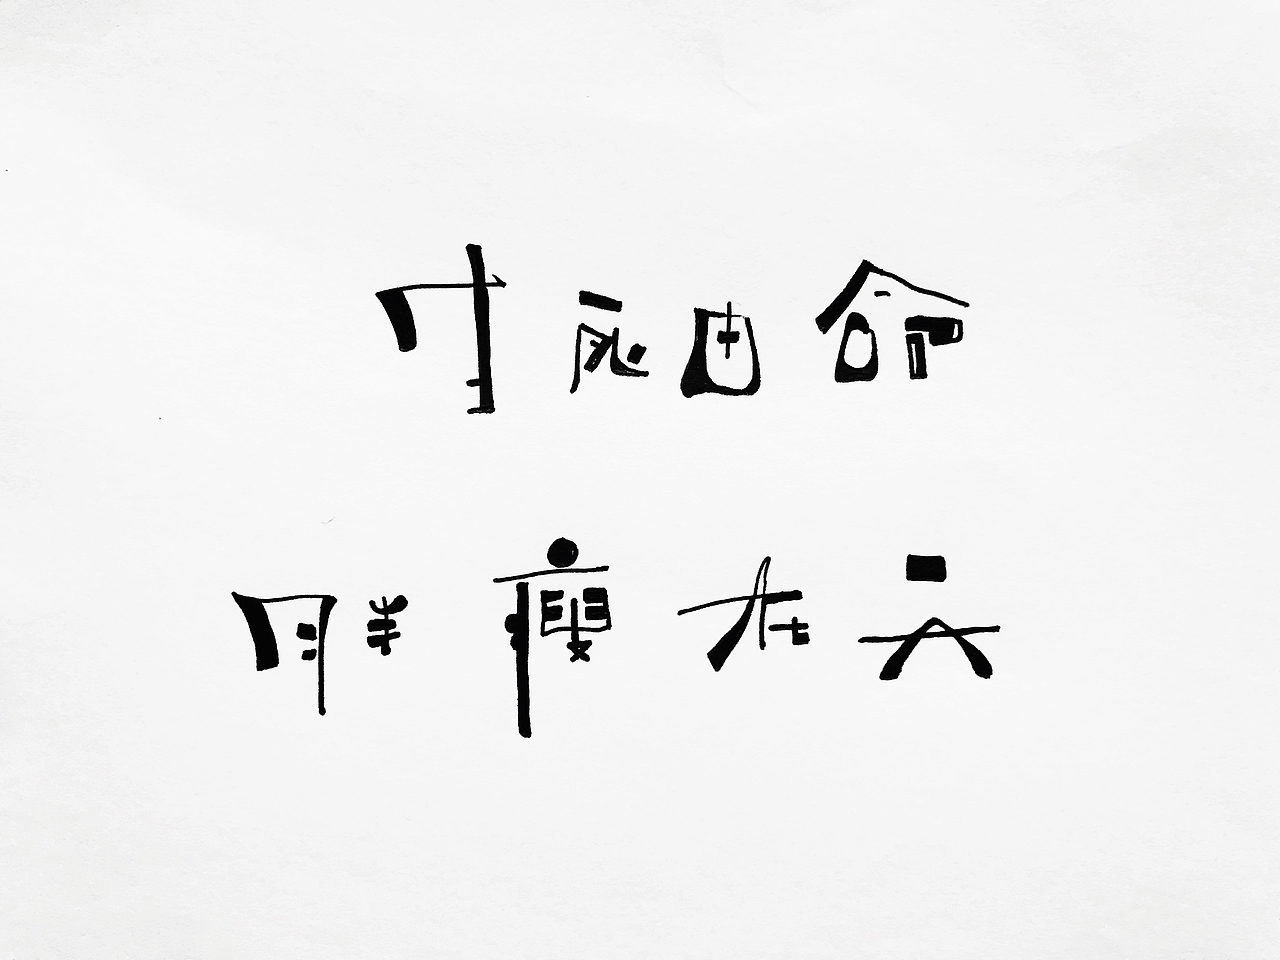 生死由命
胖瘦在天